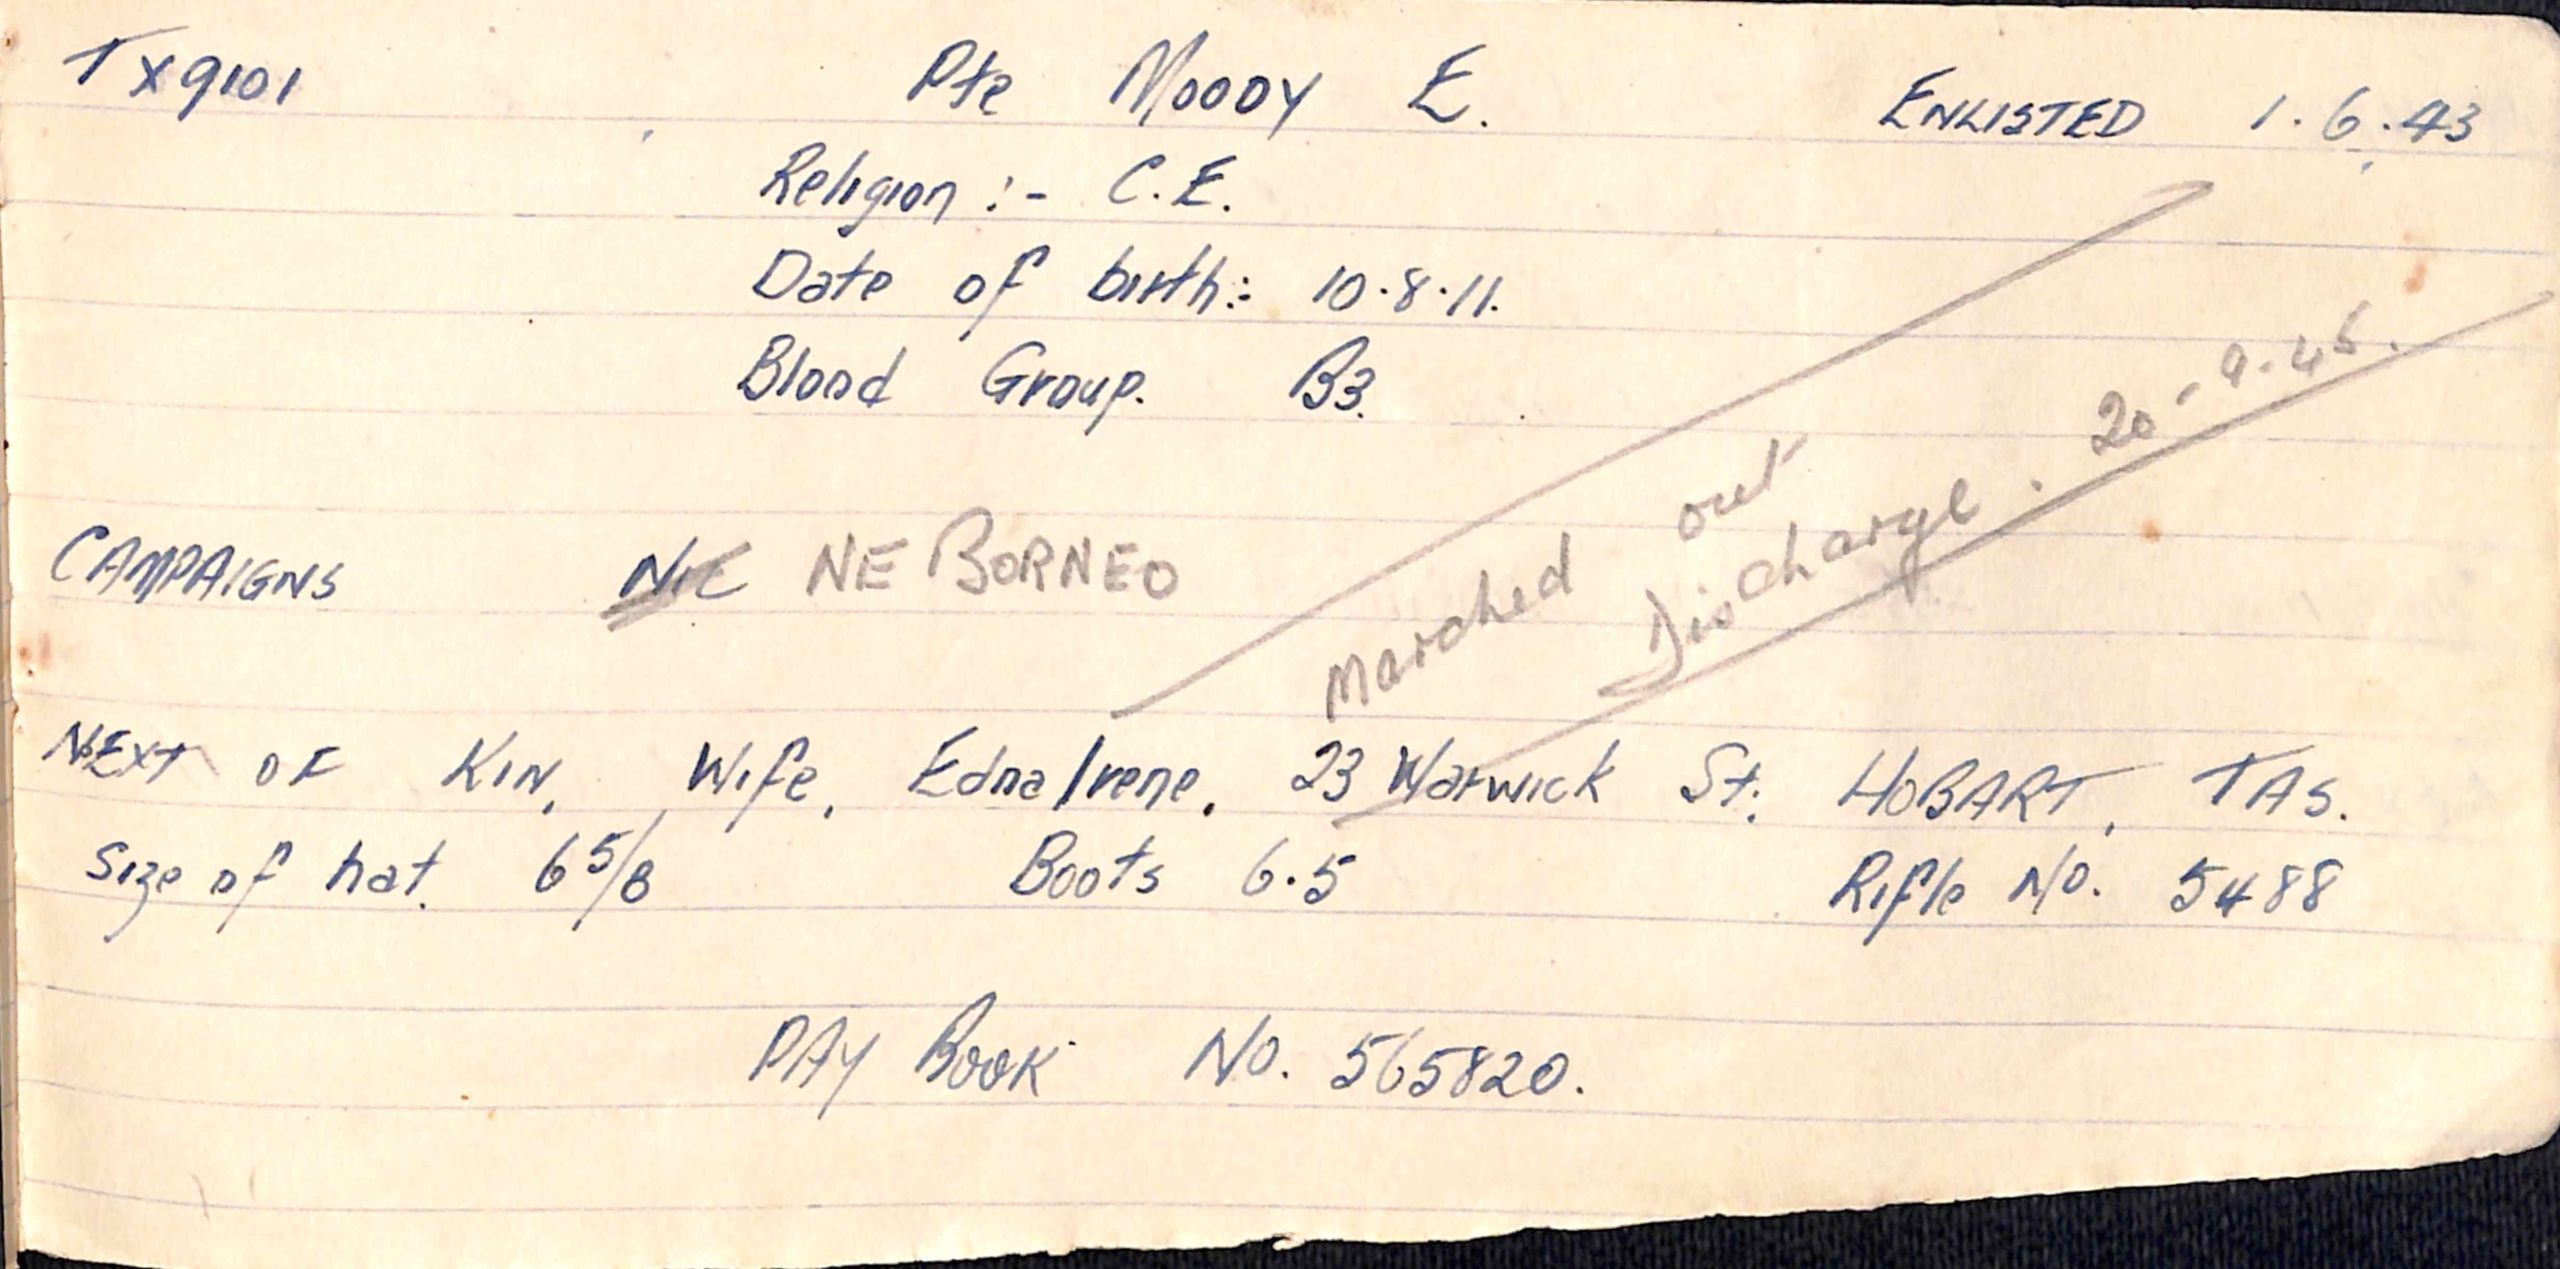 TX9101 Pte MOODY E. ENLISTED 1.6.43
Religion :- C.E.
Date of birth:- 10.8.11.
Blood Group. B3.
CAMPAIGNS NIL NE BORNEO
Marched out
Discharge. 20-9-45.
NEXT OF KIN, Wife, Edna Irene, 23 Warwick St. HOBART, TAS.
Size of hat. 6 5/8 Boots 6.5 Rifle No. 5488
PAY BOOK No. 565820.